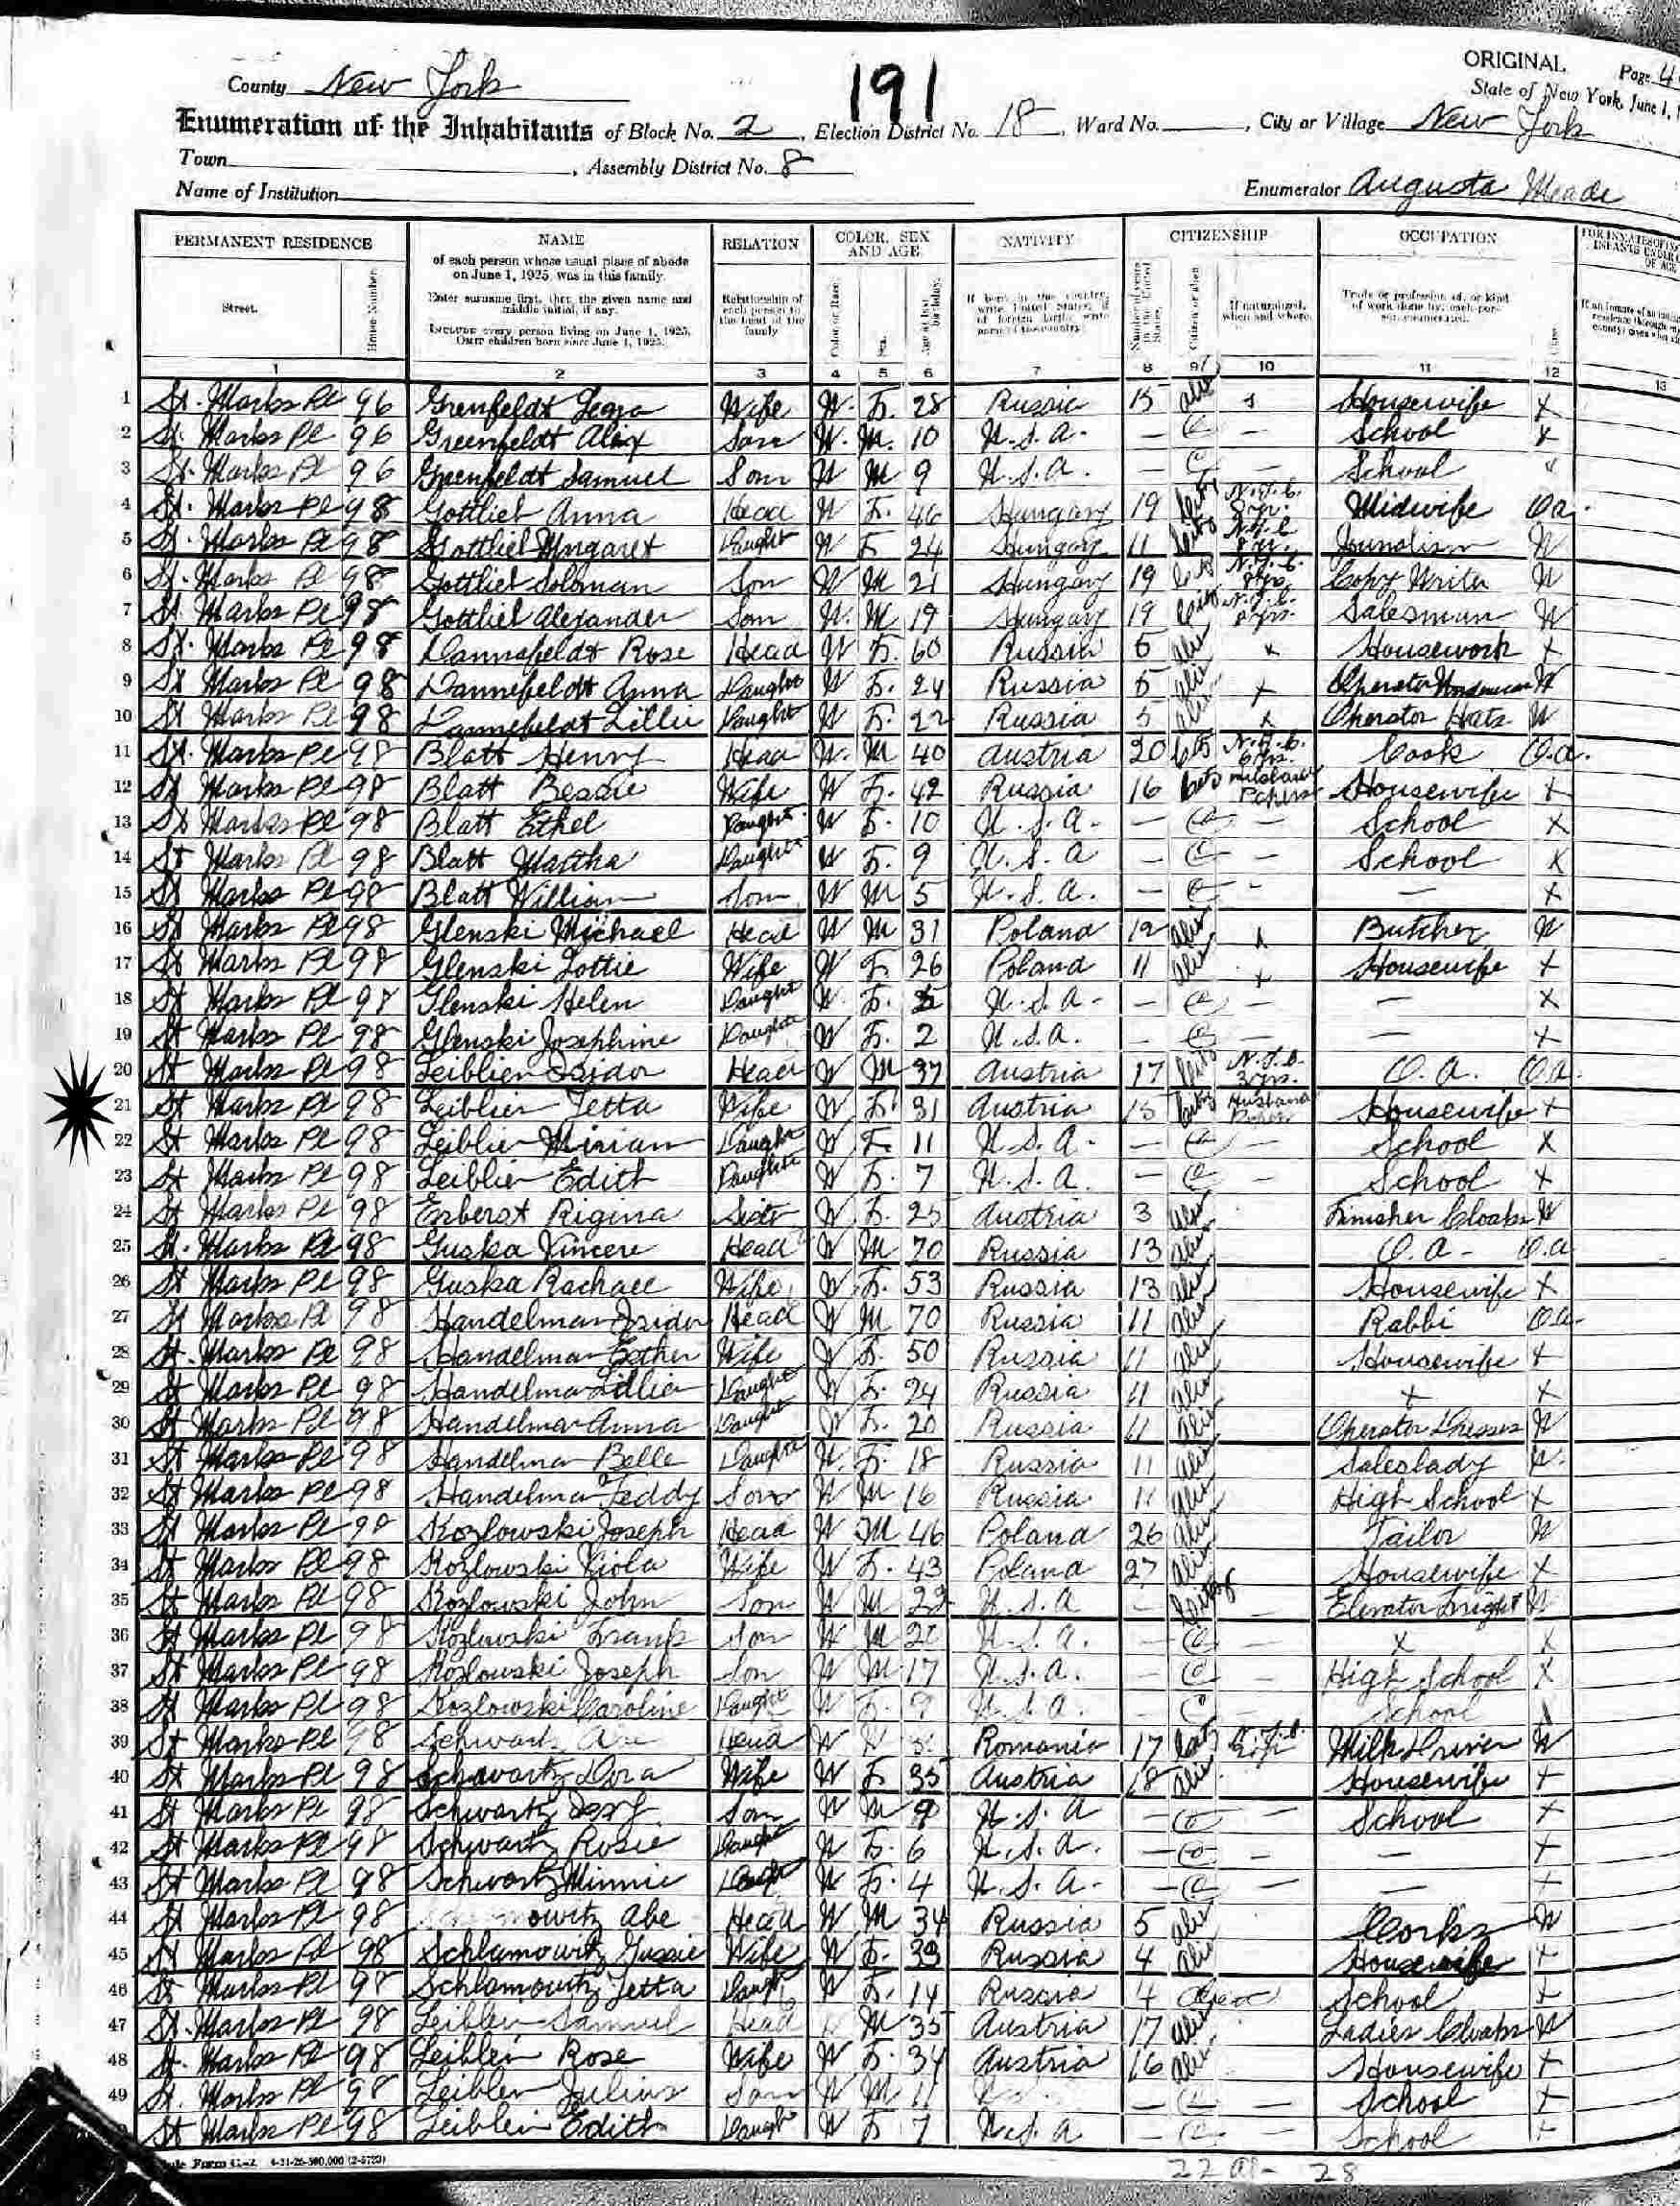 191
ORIGINAL
Page 4
State of New York, June 1, 1
County New York
Enumeration of the Inhabitants of Block No. 2, Election District No. 18, Ward No. , City or Village New York
Town , Assembly District No. 8
Name of Institution
Enumerator Augusta Meade
PERMANENT RESIDENCE NAME RELATION COLOR, SEX AND AGE NATIVITY CITIZENSHIP OCCUPATION
of each person whose usual place of abode on June 1, 1925, was in this family.
Enter surname first, then the given name and middle initial, if any.
INCLUDE every person living on June 1, 1925. OMIT children born since June 1, 1925.
Street. House Number. Relationship of each person to the head of the family Color or Race. Sex. Age at last birthday. If naturalized, when and where. Class
1 2 3 4 5 6 7 8 9 10 11 12 13
1 St. Marks Pl 96 Grenfeldt Wife W. F. 28 Russia 15 alien x Housewife x
2 St. Marks Pl 96 Greenfeldt Alex Son W. M. 10 U.S.A. — C — School x
3 St. Marks Pl 96 Greenfeldt Samuel Son W M 9 U.S.A. — C — School x
4 St. Marks Pl 98 Gottlieb Anna Head W F. 46 Hungary 19 N.Y.C. 8 yr. Midwife O.a.
5 St. Marks Pl 98 Gottlieb Margaret Daught W F 24 Hungary 11 N.Y.C. 8 yr. Jounalism W
6 St. Marks Pl 98 Gottlieb Soloman Son W M 21 Hungary 19 N.Y.C. 8 yrs. Copy Writer W
7 St Marks Pl 98 Gottlieb Alexander Son W. M 19 Hungary 19 N.Y.C. 8 yrs. Salesman W
8 St. Marks Pl 98 Dannafeldt Rose Head W F. 60 Russia 5 alien x Housework x
9 St Marks Pl 98 Dannefeldt Anna Daught W F. 24 Russia 5 alien x Operator W
10 St Marks Pl 98 Dannefeldt Lillie Daught W F. 22 Russia 5 alien x Operator Hats W
11 St. Marks Pl 98 Blatt Henry Head W. M 40 Austria 20 N.Y.C. 6 yrs. Cook O.a.
12 St Marks Pl 98 Blatt Bessie Wife W F. 42 Russia 16 Housewife x
13 St Marks Pl 98 Blatt Ethel Daught W F. 10 U.S.A. — C — School x
14 St Marks Pl 98 Blatt Martha Daught W F. 9 U.S.A — C — School x
15 St Marks Pl 98 Blatt William Son W M 5 U.S.A. — C - — x
16 St Marks Pl 98 Glenski Michael Head W M 31 Poland 12 alien x Butcher W
17 St Marks Pl 98 Glenski Lottie Wife W F 26 Poland 11 alien x Housewife x
18 St Marks Pl 98 Glenski Helen Daught W. F. U.S.A. — C — — x
19 St Marks Pl 98 Glenski Josephine Daughte W F. 2 U.S.A. — C — — x
20 St Marks Pl 98 Leiblien Isidor Head W M 37 Austria 17 N.Y.C. 3 yrs. O.A. O.a.
21 St Marks Pl 98 Leiblien Yetta Wife W F 31 Austria 15 Husband Papers Housewife x
22 St Marks Pl 98 Leiblien Miriam Daught W F. 11 U.S.A. — C — School x
23 St Marks Pl 98 Leiblien Edith Daughte W F. 7 U.S.A. — C — School x
24 St Marks Pl 98 Rigina Sister W F. 25 Austria 3 alien Finisher Cloaks W
25 St. Marks Pl 98 Guska Head W M 70 Russia 13 alien O.A. O.a
26 St Marks Pl 98 Guska Rachael Wife W F. 53 Russia 13 alien Housewife x
27 St Marks Pl 98 Handelman Isidor Head W M 70 Russia 11 alien Rabbi O.a.
28 St. Marks Pl 98 Handelman Esther Wife W F. 50 Russia 11 alien Housewife x
29 St Marks Pl 98 Handelman Lillian Daught W F. 24 Russia 11 alien x x
30 St Marks Pl 98 Handelman Anna Daught W F. 20 Russia 11 alien Operator Dresses W
31 St Marks Pl 98 Handelman Belle Daught W. F. 18 Russia 11 alien Saleslady W.
32 St Marks Pl 98 Handelman Teddy Son W M 16 Russia 11 alien High School x
33 St Marks Pl 98 Kozlowski Joseph Head W M 46 Poland 26 alien Tailor W
34 St Marks Pl 98 Kozlowski Viola Wife W F. 43 Poland 27 alien Housewife x
35 St Marks Pl 98 Kozlowski John Son W M U.S.A - — Elevator W
36 St Marks Pl 98 Kozlowski Frank Son W M U.S.A. — C — x x
37 St Marks Pl 98 Kozlowski Joseph Son W M 17 U.S.A. — C — High School x
38 St Marks Pl 98 Kozlowski Caroline Daught W F. 9 U.S.A. — C — School
39 St Marks Pl 98 Schwartz Abe Head W Romania 17 Milk Driver W
40 St Marks Pl 98 Schwartz Dora Wife W F 35 Austria 18 alien Housewife x
41 St Marks Pl 98 Schwartz Son W M 9 U.S.A — C — School x
42 St Marks Pl 98 Schwartz Rosie Daught W F. 6 U.S.A. — C — — x
43 St Marks Pl 98 Schwartz Minnie Daught W F. 4 U.S.A. — C — — x
44 St Marks Pl 98 owitz Abe Head W M 34 Russia 5 alien W
45 St Marks Pl 98 Schlamowitz Gussie Wife W F. Russia 4 alien Housewife x
46 St Marks Pl 98 Schlamowitz Yetta Daught W F. 14 Russia 4 alien School x
47 St. Marks Pl 98 Leiblen Samuel Head M 35 Austria 17 alien Ladies Cloaks W
48 St. Marks Pl 98 Leiblein Rose Wife W F. 34 Austria 16 alien Housewife x
49 St. Marks Pl 98 Leiblen Julius Son W M 11 — C — School x
St Marks Pl 98 Leiblein Edith Daught W F 7 U.S.A — C — School x
22 al- 28